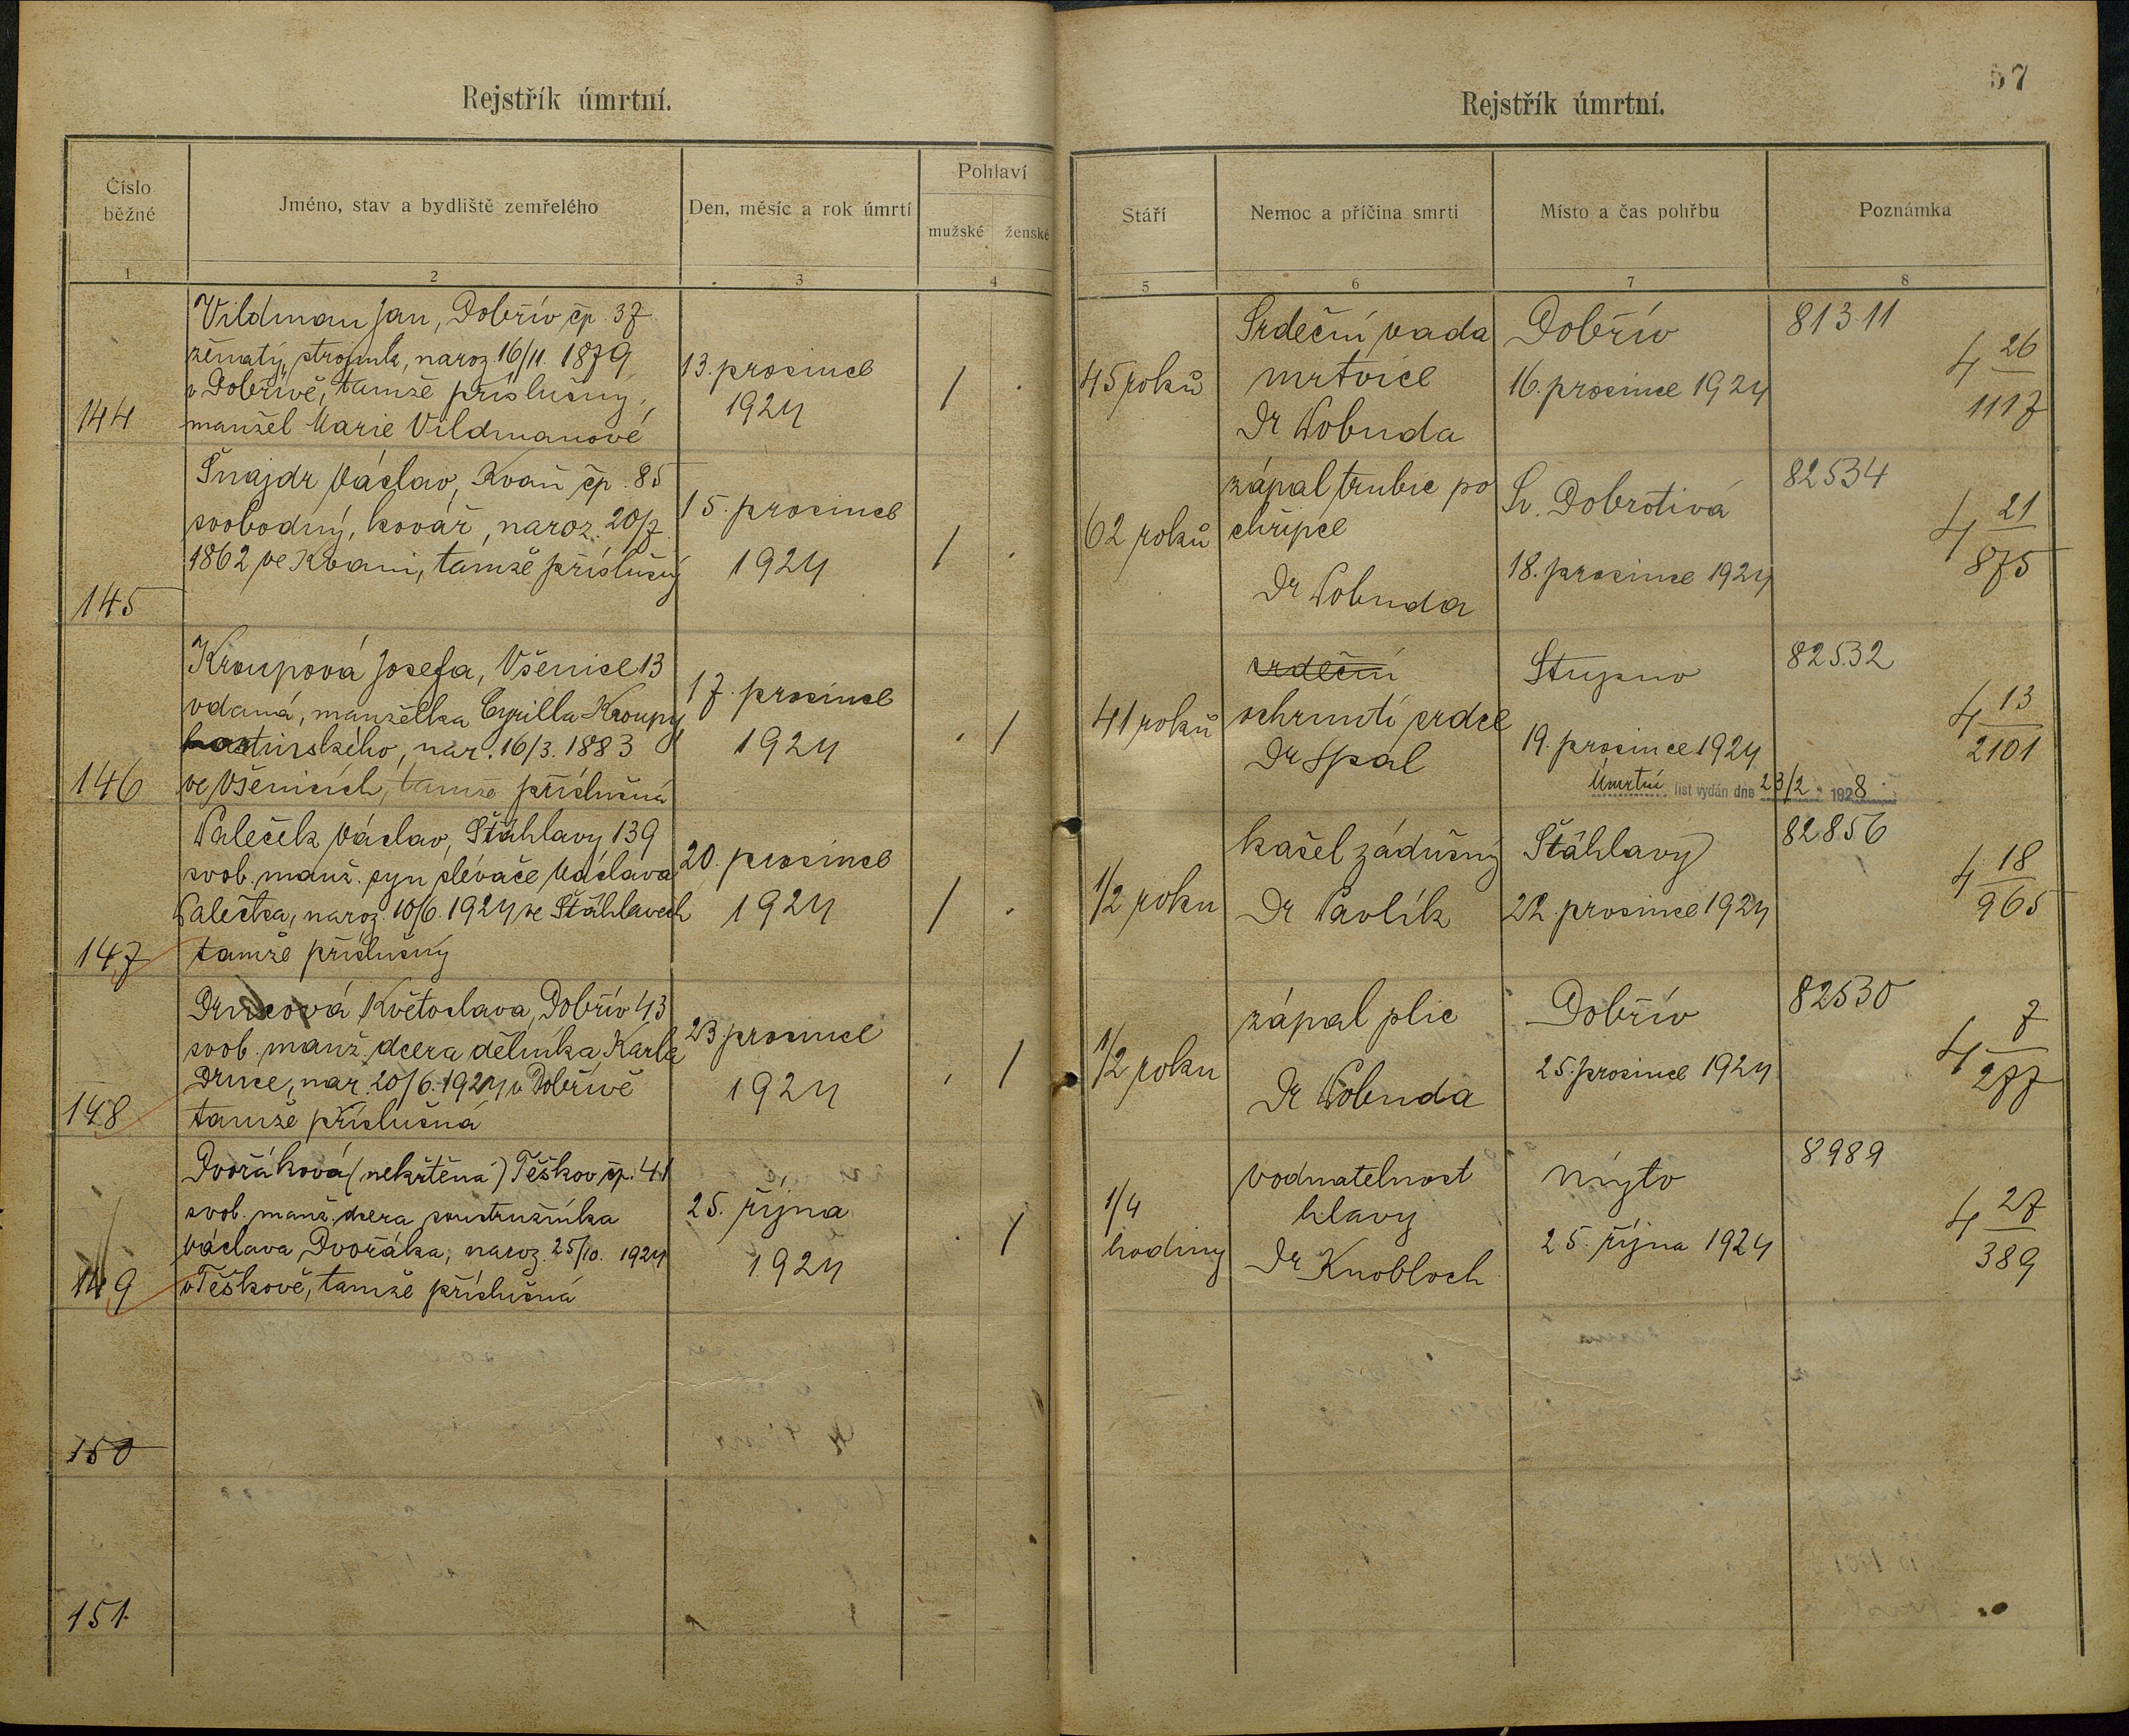 Rejstřík úmrtní.
Číslo běžné
Jméno, stav a bydliště zemřelého
Den, měsíc a rok úmrtí
Pohlaví
mužské ženské
1 2 3 4
144
Vildman Jan, Dobřív čp. 37
ženatý, naroz. 16/11. 1879
v Dobřívě, tamže příslušný,
manžel Marie Vildmanové
13. prosince
1924
/ .
145
Šnajdr Václav, Kvaň čp. 85
svobodný, kovář, naroz. 20/7.
1862 ve Kvani, tamže příslušný
15. prosince
1924
/ .
146
Kroupová Josefa, Všenice 13
vdaná, manželka Cyrilla Kroupy
hostinského, nar. 16/3. 1883
ve Všenicích, tamže příslušná
17. prosince
1924
. /
147
Paleček Václav, Šťáhlavy 139
svob. manž. syn slévače Václava
Palečka, naroz. 10/6. 1924 ve Šťáhlavech
tamže příslušný
20. prosince
1924
/ .
148
Květoslava, Dobřív 43
svob. manž. dcera dělníka Karla
nar. 20/6. 1924 v Dobřívě
tamže příslušná
23 prosince
1924
. /
149
Dvořáková (nekřtěná) Těškov čp. 41
svob. manž. dcera soustružníka
Václava Dvořáka, naroz. 25/10. 1924
v Těškově, tamže příslušná
25. října
1924
. /
150
151.
57
Rejstřík úmrtní.
Stáří
Nemoc a příčina smrti
Místo a čas pohřbu
Poznámka
5 6 7 8
45 roků
Srdeční vada
mrtvice
Dr Wobuda
Dobřív
16. prosince 1924
81311
4 26
1117
62 roků
zápal trubic po
chřipce
Dr Wobuda
Sv. Dobrotivá
18. prosince 1924
82534
4 21
875
41 roků
srdeční
ochrnutí srdce
Dr Spal
Stupno
19. prosince 1924
Úmrtní list vydán dne 23/2 1928
82532
4 13
2101
1/2 roku
kašel zádušný
Dr Pavlík
Šťáhlavy
22. prosince 1924
82856
4 18
965
1/2 roku
zápal plic
Dr Wobuda
Dobřív
25. prosince 1924
82530
4 7
277
1/4
hodiny
vodnatelnost
hlavy
Dr Knobloch
Mýto
25. října 1924
8989
4 27
389